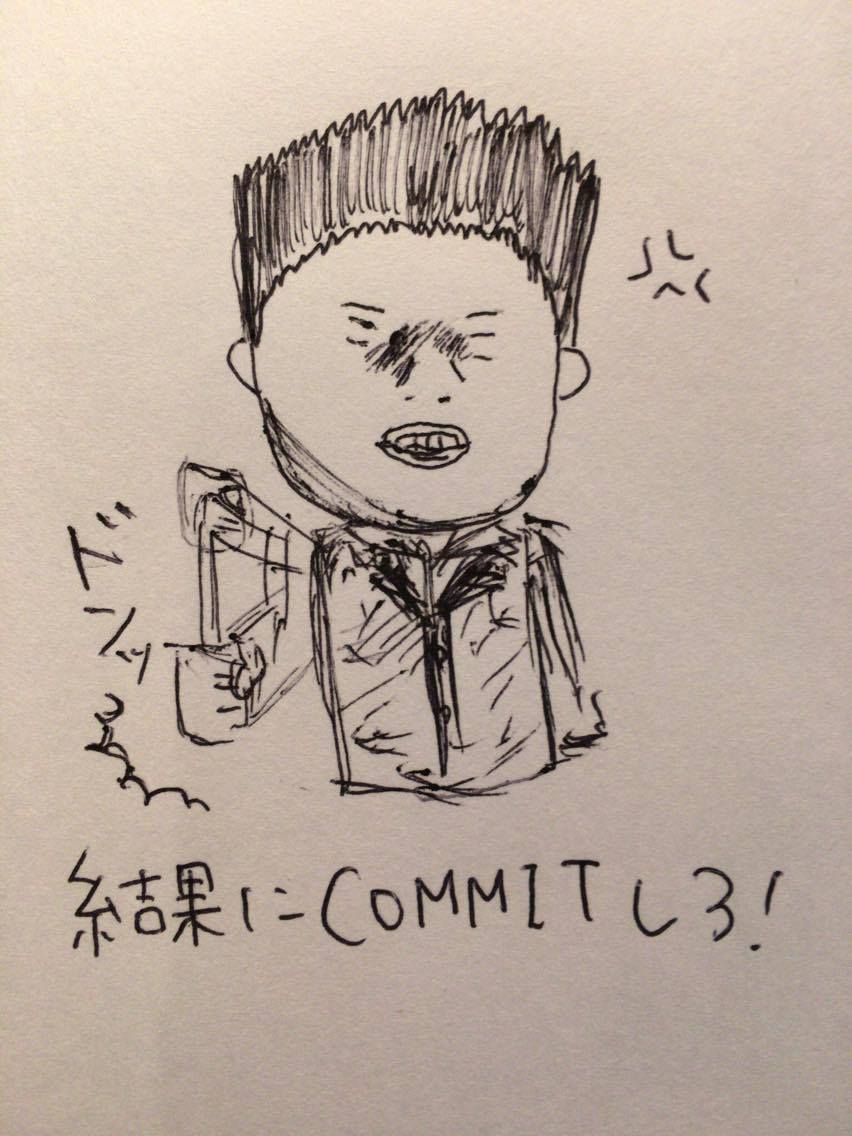 ブンッ
結果にCOMMITしろ!